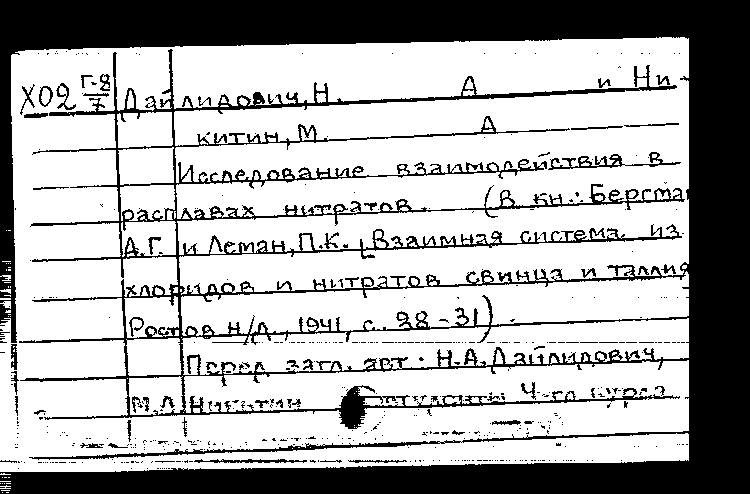 Х02 Г-8/7 Дайлидович, Н. А и Ни-
китин, М. А
Исследование взаимодействия в
расплавах нитратов. (В кн.: Бергман
А.Г. и Леман, П.К. Взаимная система из
хлоридов и нитратов свинца и таллия
Ростов н/Д., 1941, с. 28-31).
Перед загл. авт.: Н.А. Дайлидович,
М.А. Никитин, студенты 4-го курса